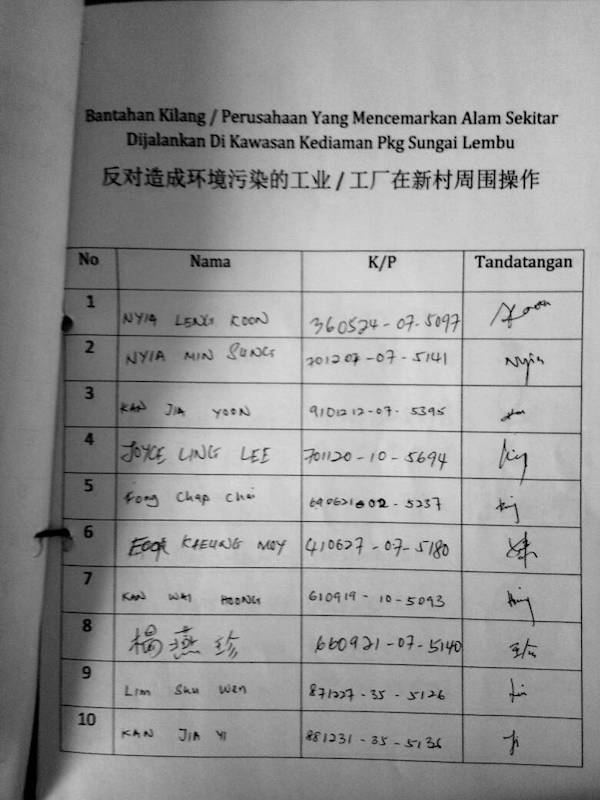 Bantahan Kilang / Perusahaan Yang Mencemarkan Alam Sekitar
Dijalankan Di Kawasan Kediaman Pkg Sungai Lembu
反对造成环境污染的工业 / 工厂在新村周围操作
No Nama K/P Tandatangan
1 NYIA LENG KOON 360524-07-5097
2 NYIA MIN SUNG 701207-07-5141 Nyia
3 KAN JIA YOON 9101212-07-5395
4 JOYCE LING LEE 701120-10-5694
5 Fong Chap Choi
6 MOY 410627-07-5180
7 KAN WAI 610919-10-5093
8 楊燕珍 660921-07-5140
9 Lim Shu Wen 871227-35-5126
10 KAN JIA YI 881231-35-5136